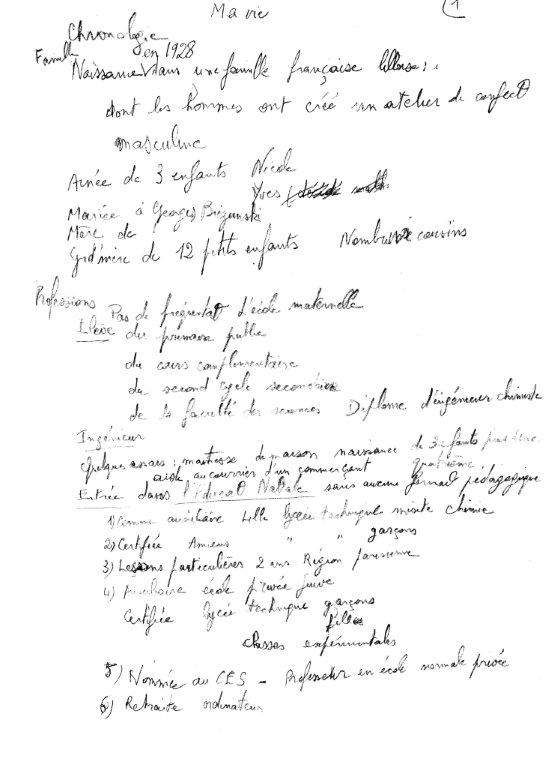 Ma vie
1
Chronologie
Famille
en 1928
Naissance dans une famille française lilloise :
dont les hommes ont créé un atelier de confect
masculine
Ainée de 3 enfants Nicole
Yves
Mariée à Georges
Mère de
Grd'mère de 12 petits enfants Nombreux cousins
Professions
Pas de fréquentat d'école maternelle
Elève du primaire public
du cours complémentaire
du second cycle secondaire
de la faculté des sciences Diplome d'ingénieur chimiste
Ingénieur
Quelques années : maitresse de maison naissance de 3 enfants puis d'une quatrième,
aide au courrier d'un commerçant
Entrée dans l'Educat Natale sans aucune format pédagogique
1) Comme auxiliaire Lille lycée technique mixte chimie
2) Certifiée Amiens " " garçons
3) Leçons particulières 2 ans Région parisienne
4) Auxiliaire école privée juive
Certifiée lycée technique garçons
filles
classes expérimentales
5) Nommée au CES - Professeur en école normale privée
6) Retraite ordinateur